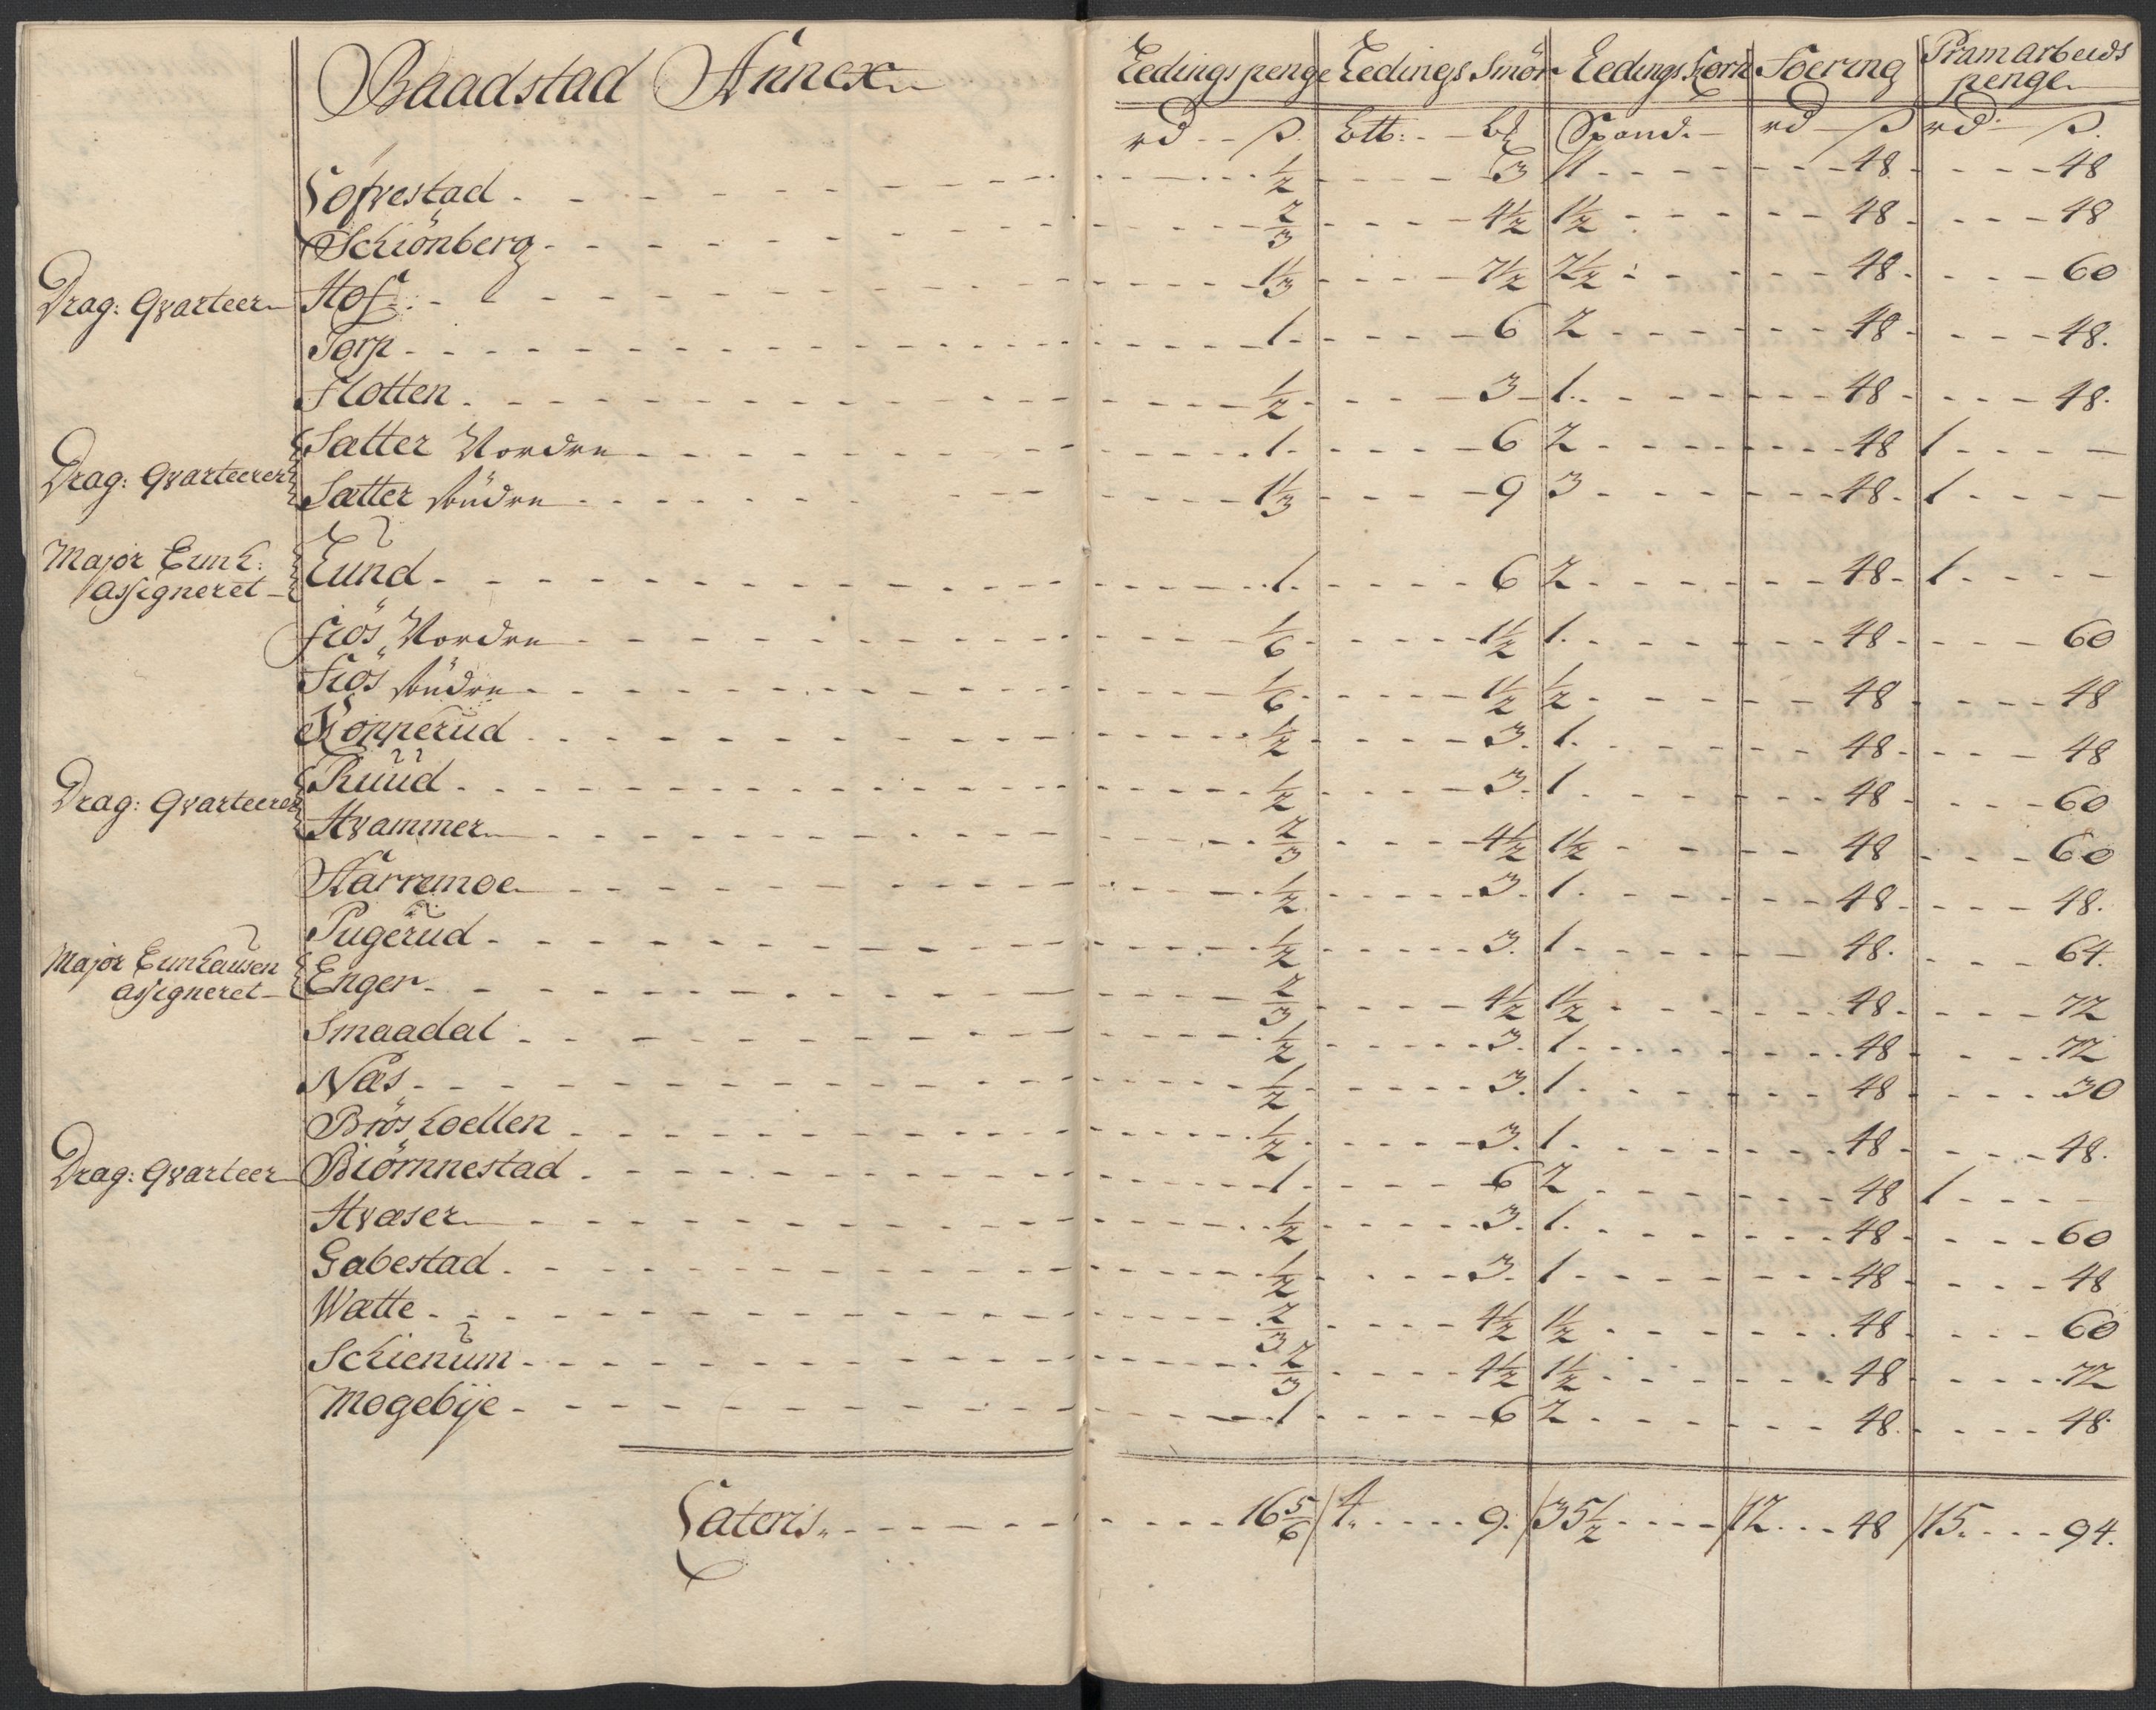 Baadstad Annex
Ledings penge Ledings Smör Ledings Korn Foering Pramarbeids penge
rd ß. Ltt: bl Spand. rd ß rd ß.
Lofvestad 1/2 3 1 48 48
Schiönberg 2/3 4 1/2 1 1/2 48 48
Drag: Qvarteer Hof 1 1/3 7 1/2 2 1/2 48 60
Torp 1 6 2 48 48.
Flotten 1/2 3 1 48 48.
Sætter Nordre 1 6 2 48 1
Drag: Qvarteerer Sætter Söndre 1 1/3 9 3 48 1
Major Eunh: assigneret Lund 1 6 2 48 1
Fiös Nordre 1/6 1 1/2 1 48 60
Fiös Söndre 1/6 1 1/2 1/2 48 48
Kopperud 1/2 3. 1. 48 48
Drag: Qvarteerer Ruud 1/2 3. 1 48 60
Hvammer 2/3 4 1/2 1 1/2 48 60
Harremoe 1/2 3. 1. 48 48.
Pugerud 1/2 3. 1 48. 64.
Major Eunhausen assigneret Enger 2/3 4 1/2 1 1/2 48 72
Smaadal 1/2 3. 1. 48 72
Næs 1/2 3. 1. 48 30
Brös hoellen 1/2 3. 1. 48 48.
Drag: Qvarteer Biörnnestad 1 6 2 48 1
Hvæser 1/2 3. 1. 48 60
Gabestad 1/2 3. 1 48 48
Watte 2/3 4 1/2 1 1/2 48 60
Schienum 2/3 4 1/2 1 1/2 48 72
Mogebÿe 1 6 2 48 48
Lateris 16 5/6 4. 9. 35 1/2 12 48 15. 94.